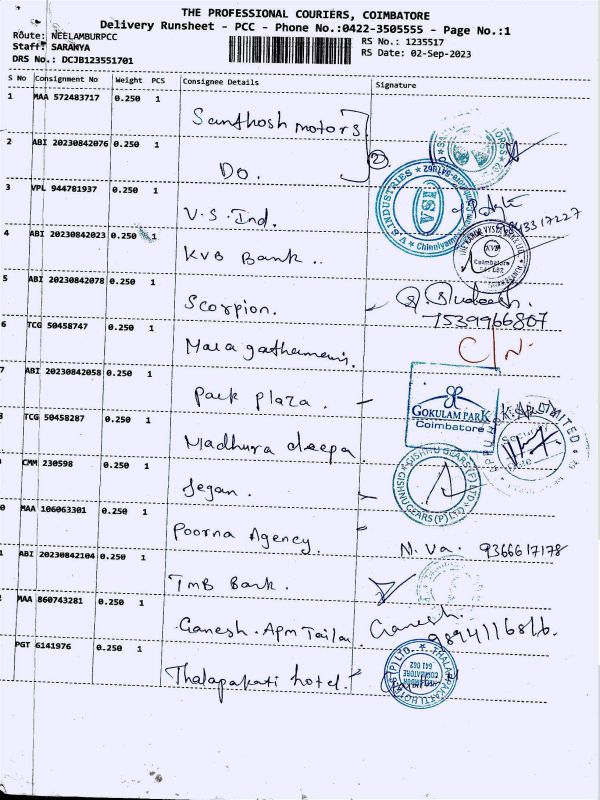 THE PROFESSIONAL COURIERS, COIMBATORE
Delivery Runsheet - PCC - Phone No.:0422-3505555 - Page No.:1
Route: NEELAMBURPCC
Staff: SARANYA
DRS No.: DCJB123551701
RS No.: 1235517
RS Date: 02-Sep-2023
S No Consignment No Weight PCS Consignee Details Signature
1 MAA 572483717 0.250 1
Santhosh motors
2 ABI 20230842076 0.250 1
Do. 2
3 VPL 944781937 0.250 1
V.S. Ind.
V S INDUSTRIES
ISA
4 ABI 20230842023 0.250 1
KVB Bank.
KVB
Coimbatore
5 ABI 20230842078 0.250 1
Scorpion.
7539966807
6 TCG 50458747 0.250 1
C/N.
7 ABI 20230842058 0.250 1
Park plaza.
GOKULAM PARK
Coimbatore
TCG 50458287 0.250 1
Madhura deepa
LIMITED
CMM 230598 0.250 1
Jegan.
GISHNU GEARS (P) LTD
0 MAA 106063301 0.250 1
Poorna Agency.
N. Va. 9366617178
1 ABI 20230842104 0.250 1
TMB Bank.
MAA 860743281 0.250 1
Ganesh. Apm Tailor Ganesh.
PGT 6141976 0.250 1
Thalapakati hotel.
COIMBATORE
641 062